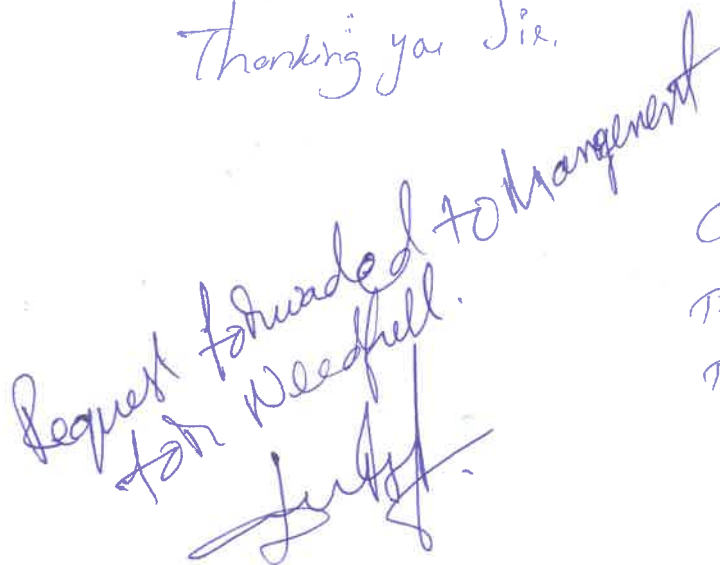 Thanking you Sir.
Request forwaded to Mangement
for Needfull.